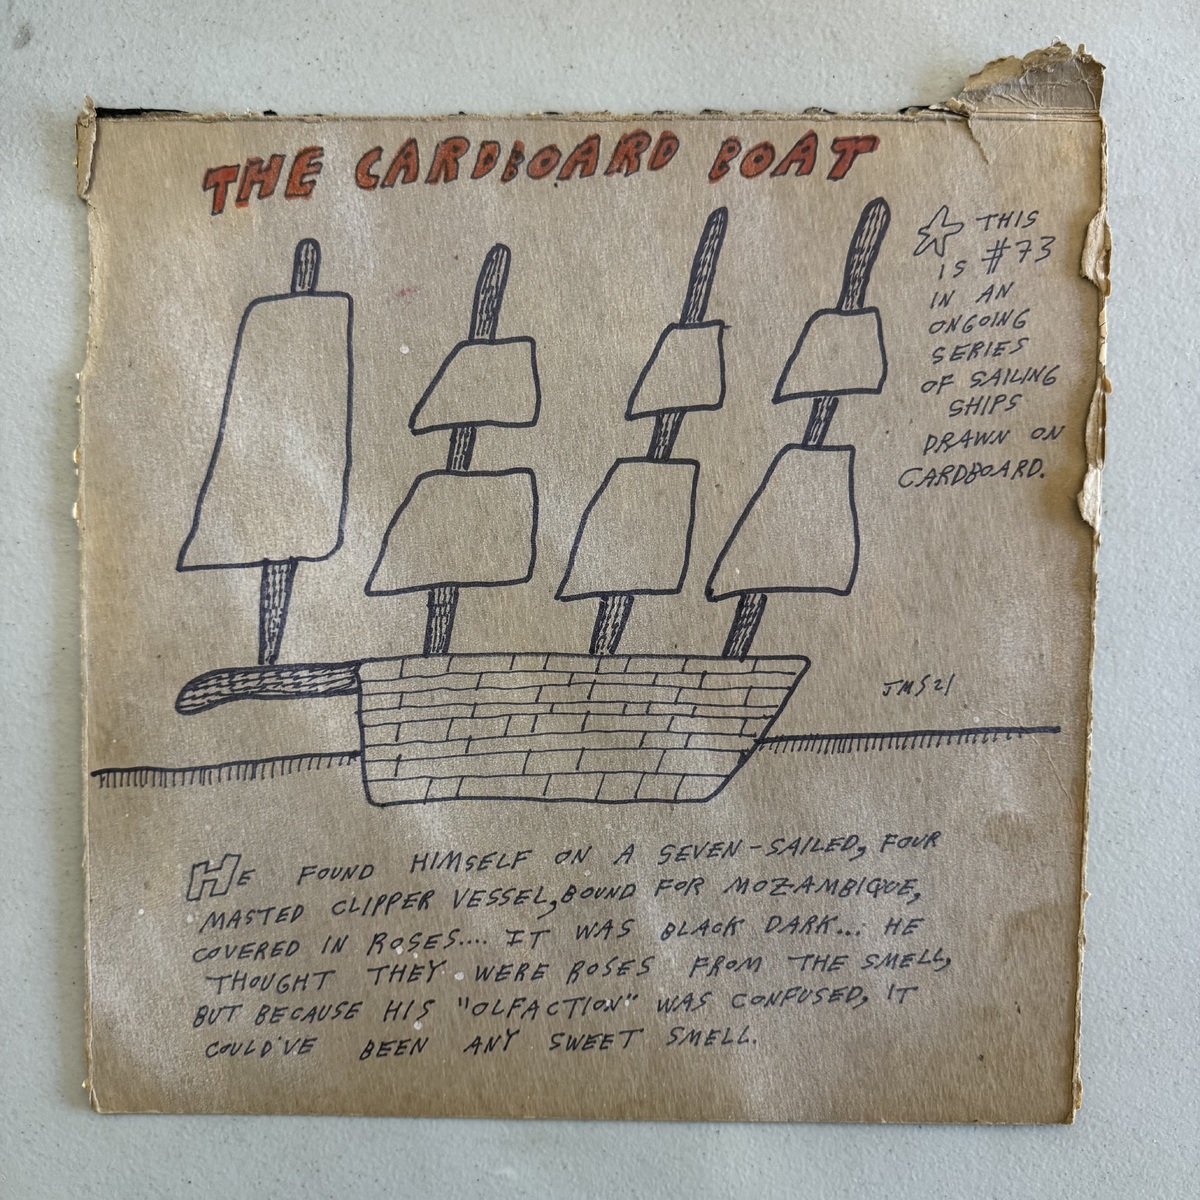 THE CARDBOARD BOAT
☆ THIS
IS #73
IN AN
ONGOING
SERIES
OF SAILING
SHIPS
DRAWN ON
CARDBOARD.
JMS21
HE FOUND HIMSELF ON A SEVEN-SAILED, FOUR
MASTED CLIPPER VESSEL, BOUND FOR MOZAMBIQUE,
COVERED IN ROSES.... IT WAS BLACK DARK... HE
THOUGHT THEY WERE ROSES FROM THE SMELL,
BUT BECAUSE HIS "OLFACTION" WAS CONFUSED, IT
COULD'VE BEEN ANY SWEET SMELL.